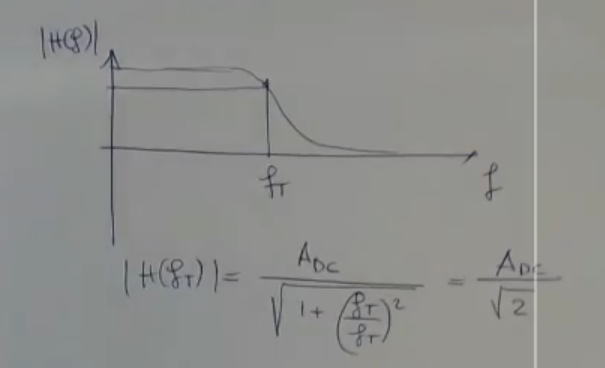 |H(f)|
f_T
f
|H(f_T)| = A_DC / √(1 + (f_T / f_T)²) = A_DC / √2